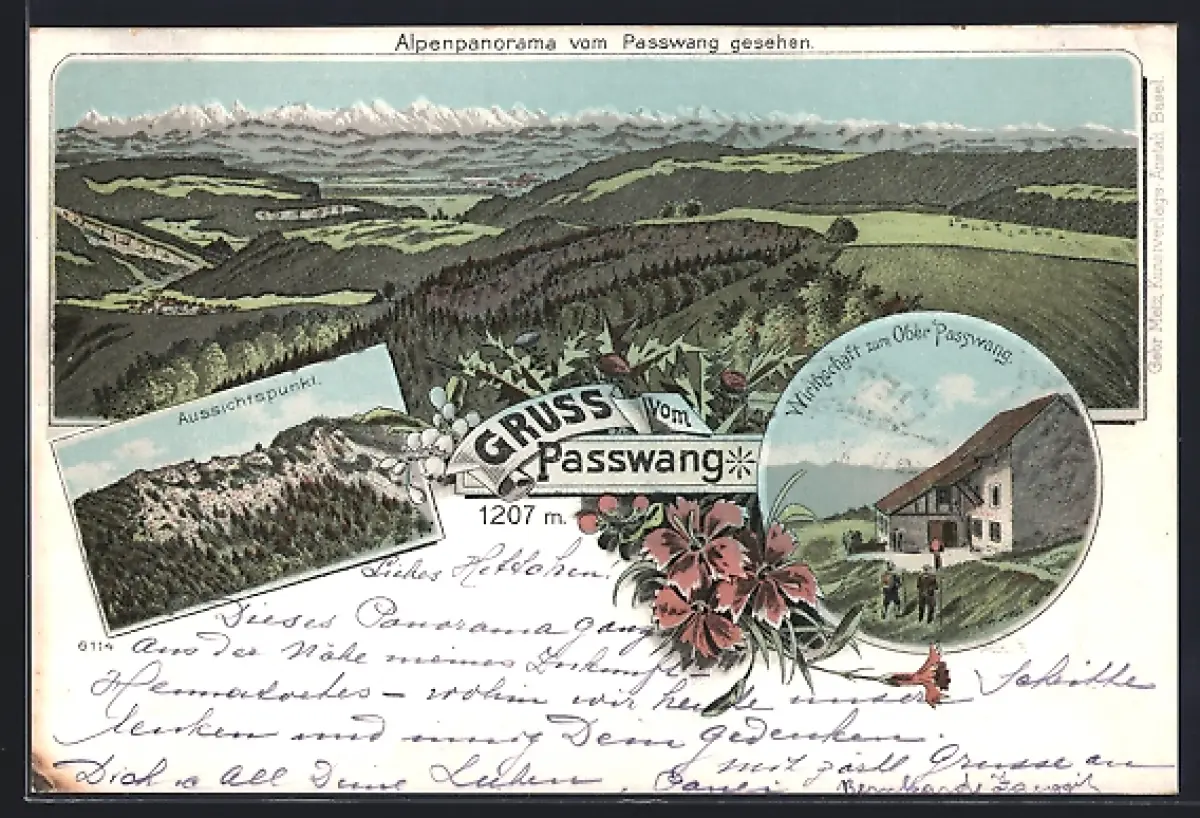 Alpenpanorama vom Passwang gesehen.
Gebr Metz, Kunstverlags-Anstalt Basel.
Wirthschaft zum Ober Passwang.
Aussichtspunkt.
GRUSS vom
Passwang
1207 m.
6114
Liebes
Dieses Panorama ganz
aus der Nähe meines
Heimatortes – wohin wir heute unsere Schritte
lenken und innig Dein gedenken.
mit Grüsse an
Dich & all Deine Lieben,